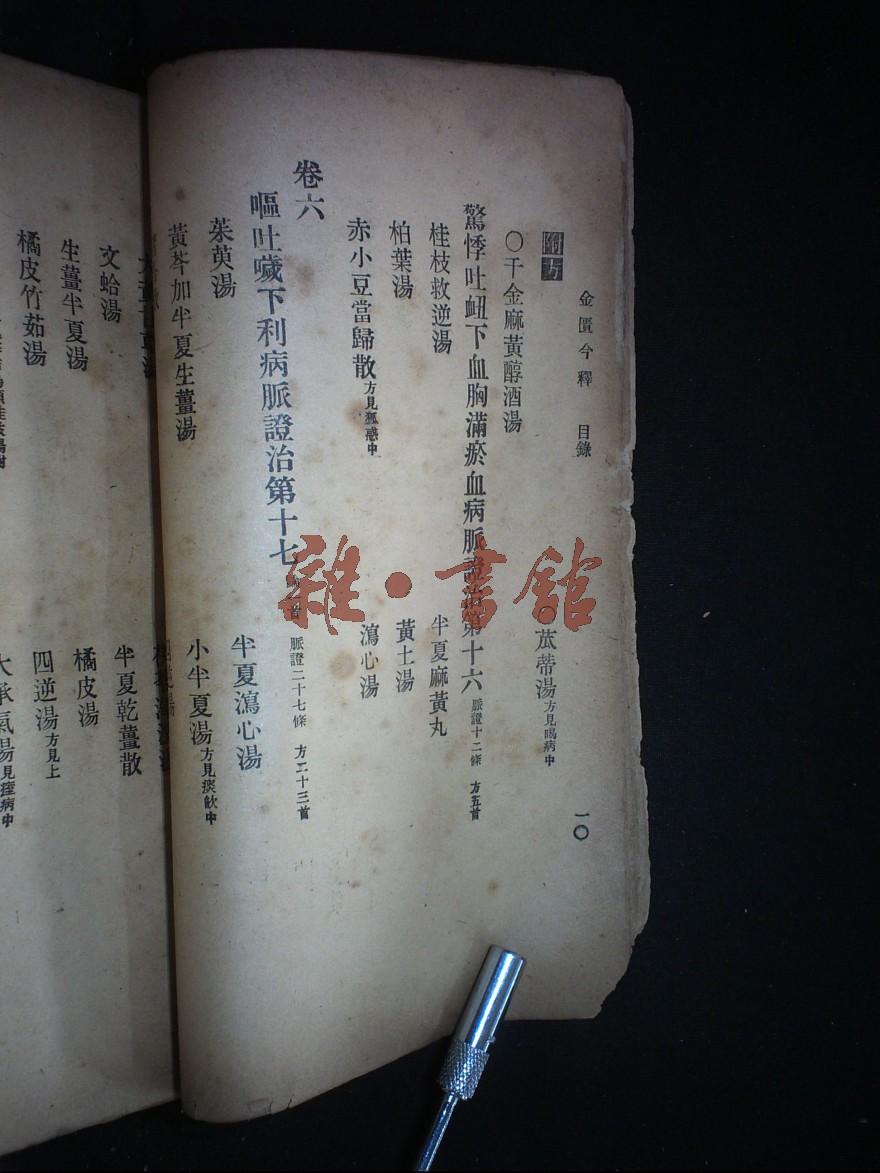 金匱今釋　目錄　一〇
附方
〇千金麻黃醇酒湯
〇苽蒂湯方見暍病中
驚悸吐衄下血胸滿瘀血病脈證治第十六脈證十二條　方五首
桂枝救逆湯
半夏麻黃丸
柏葉湯
黃土湯
赤小豆當歸散方見狐惑中
瀉心湯
卷六
嘔吐噦下利病脈證治第十七
脈證二十七條　方二十三首
茱萸湯
半夏瀉心湯
黃芩加半夏生薑湯
小半夏湯方見痰飲中
文蛤湯
半夏乾薑散
生薑半夏湯
橘皮湯
橘皮竹茹湯
四逆湯方見上
大承氣湯見痙病中
雜·書館